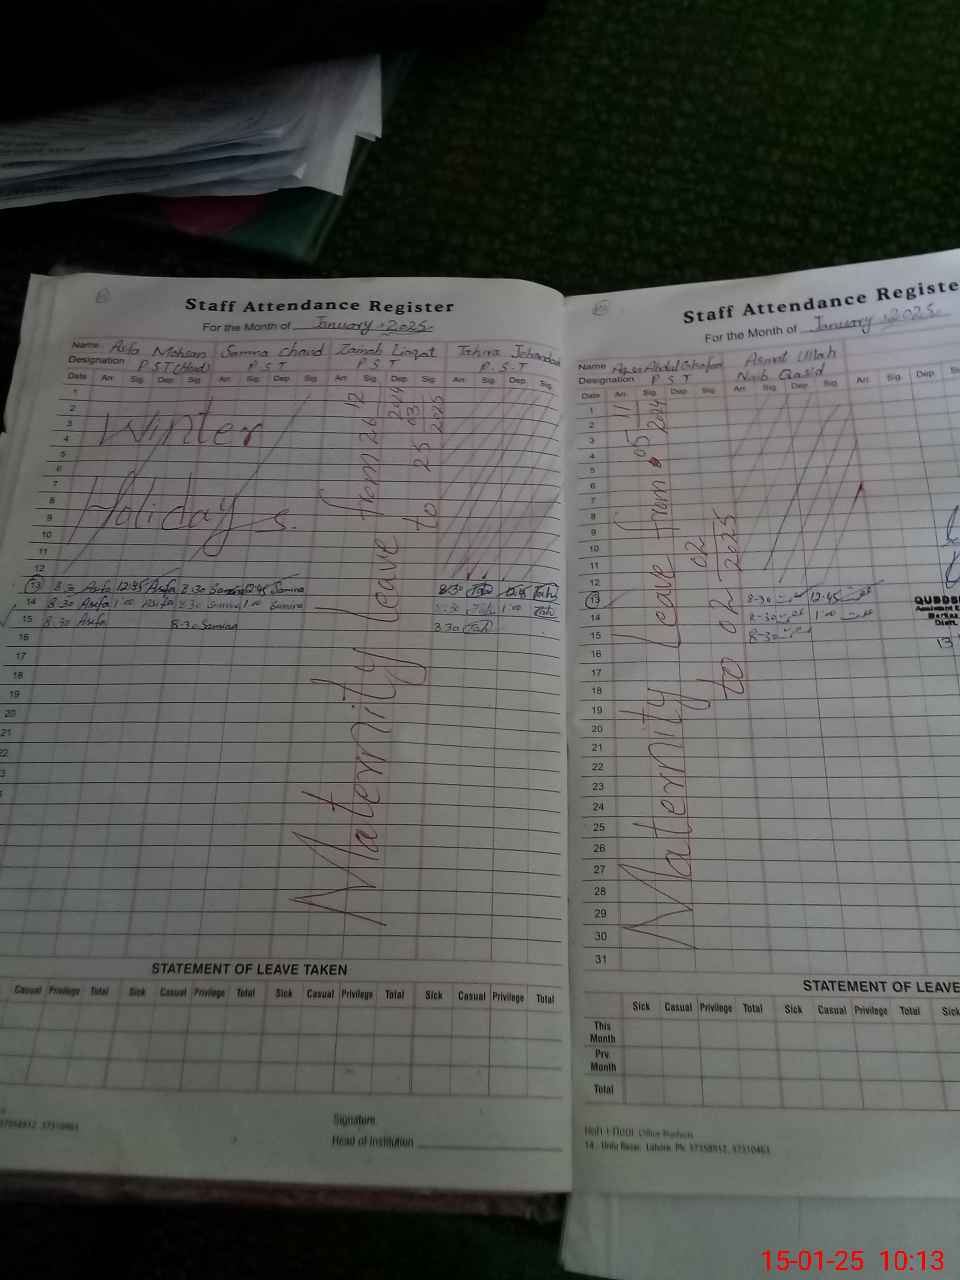 Staff Attendance Register
For the Month of January, 2025.
Name Asifa Mohsan Samina Chand Zainab Liaqat Tahira Jehandad
Designation P S T (Head) P S T P S T P. S. T
Date Arr. Sig. Dep. Sig. Arr. Sig. Dep. Sig. Arr. Sig. Dep. Sig. Arr. Sig. Dep. Sig.
1
2
3
4
5
6
7
8
9
10
11
12
Winter
Holidays.
13 8:30 Asifa 12:45 Asifa 8:30 Samina 12:45 Samina 8:30 Tah 12:45 Tah
14 8:30 Asifa 1:00 Asifa 8:30 Samina 1:00 Samina 8:30 Tah 1:00 Tah
15 8:30 Asifa 8:30 Samina 8:30 Tah
16
17
18
19
20
21
22
Maternity Leave from 26 12 2024
to 25 03 2025
STATEMENT OF LEAVE TAKEN
Casual Privilege Total Sick Casual Privilege Total Sick Casual Privilege Total Sick Casual Privilege Total
Signature
Head of Institution
37358932, 37310463
Staff Attendance Registe
For the Month of January, 2025.
Name Abdul Asmat Ullah
Designation P S T Naib Qasid
Date Arr. Sig. Dep. Sig. Arr. Sig. Dep. Sig. Arr. Sig. Dep.
1
2
3
4
5
6
7
8
9
10
11
12
13 8:30 12:45
14 8:30 1:00
15 8:30
16
17
18
19
20
21
22
23
24
25
26
27
28
29
30
31
Maternity Leave from 05 11 2024
to 02 02 2025
13
STATEMENT OF LEAVE
Sick Casual Privilege Total Sick Casual Privilege Total Sick
This Month
Prv. Month
Total
Office Products
14, Urdu Bazar, Lahore. Ph: 37358932, 37310463
15-01-25 10:13